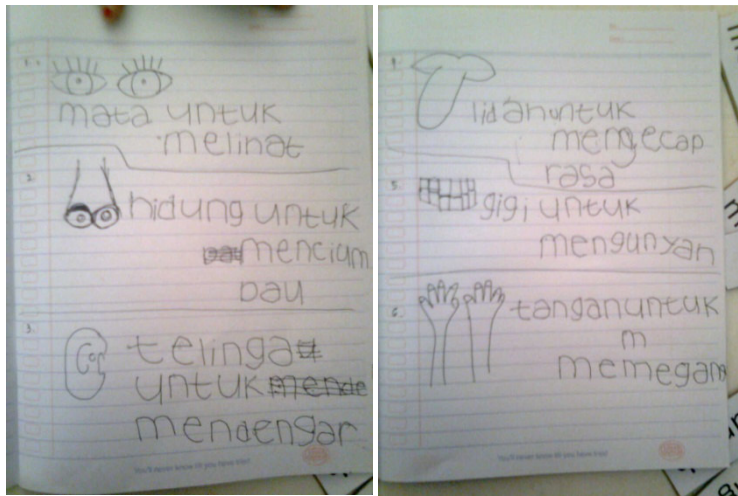 1.
mata untuk
melihat
2.
hidung untuk
mencium
bau
3.
telinga
untuk
mendengar
You'll never know till you have tried
4.
lidah untuk
mengecap
rasa
5.
gigi untuk
mengunyah
6.
tangan untuk
m
memegang
You'll never know till you have tried